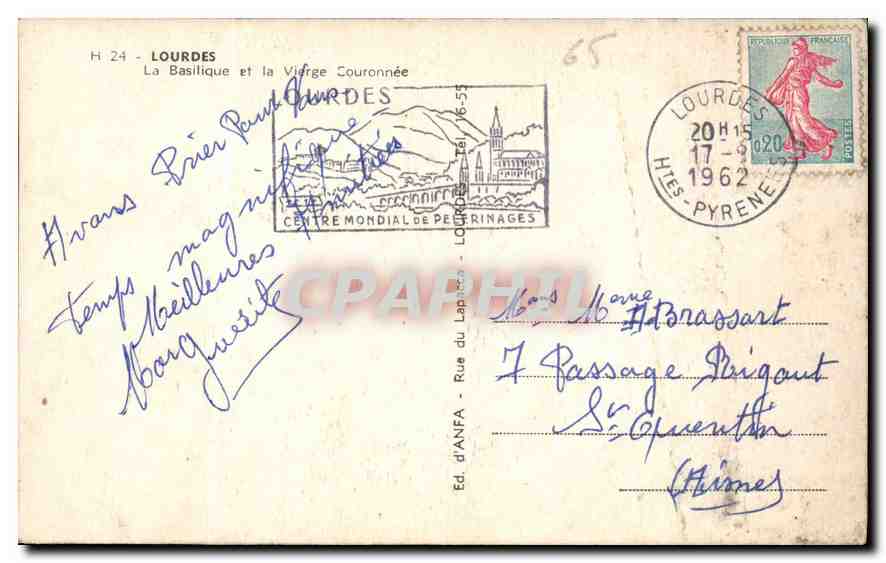 H 24 - LOURDES
La Basilique et la Vierge Couronnée
65
Avons Prier Pour Vous
temps magnifique
Meilleures Amitiés
Marguerite
LOURDES
CENTRE MONDIAL DE PELERINAGES
LOURDES
20H15
17-9
1962
HTES-PYRENEES
REPUBLIQUE FRANÇAISE
0,20
POSTES
Ed. d'ANFA - Rue du Lapacca - LOURDES - Tél. 16-55
CPAPHIL
Mme Brassart
7 Passage Rigaut
St Quentin
(Aisne)